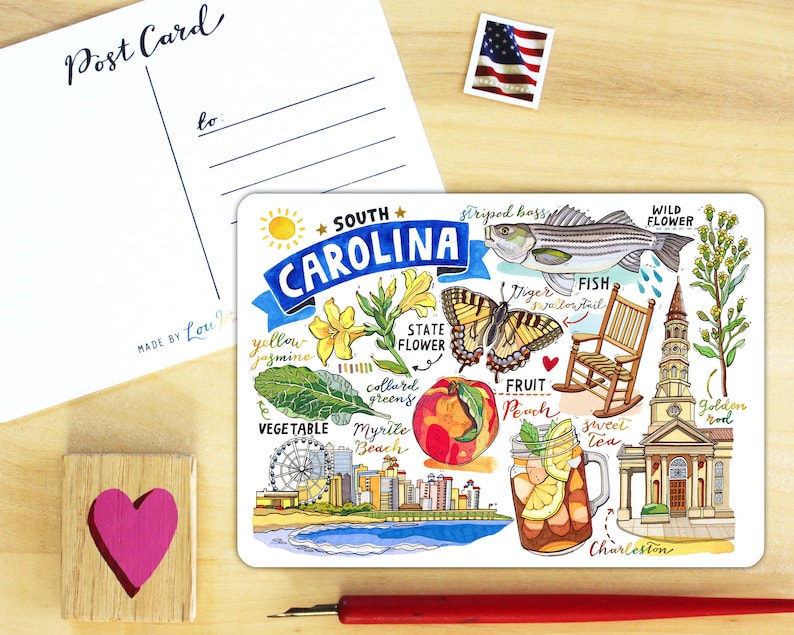 Post Card
to:
MADE BY Lou
SOUTH
CAROLINA
striped bass
WILD
FLOWER
FISH
Tiger
swallowtail
STATE
FLOWER
yellow
jasmine
collard
greens
FRUIT
Peach
VEGETABLE
Myrtle
Beach
sweet
tea
golden
rod
Charleston